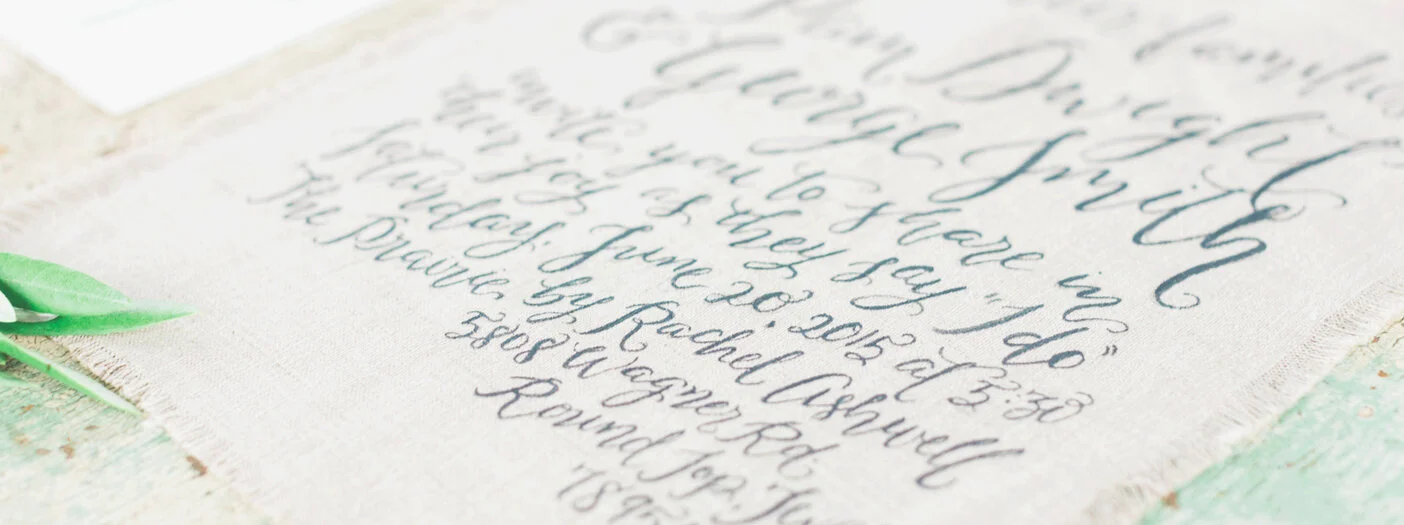 families
Dwight
& George Smith
invite you to share in
their joy as they say "I do"
Saturday, June 20, 2015 at 5:30
The Prairie by Rachel Ashwell
5808 Wagner Rd
Round Top,